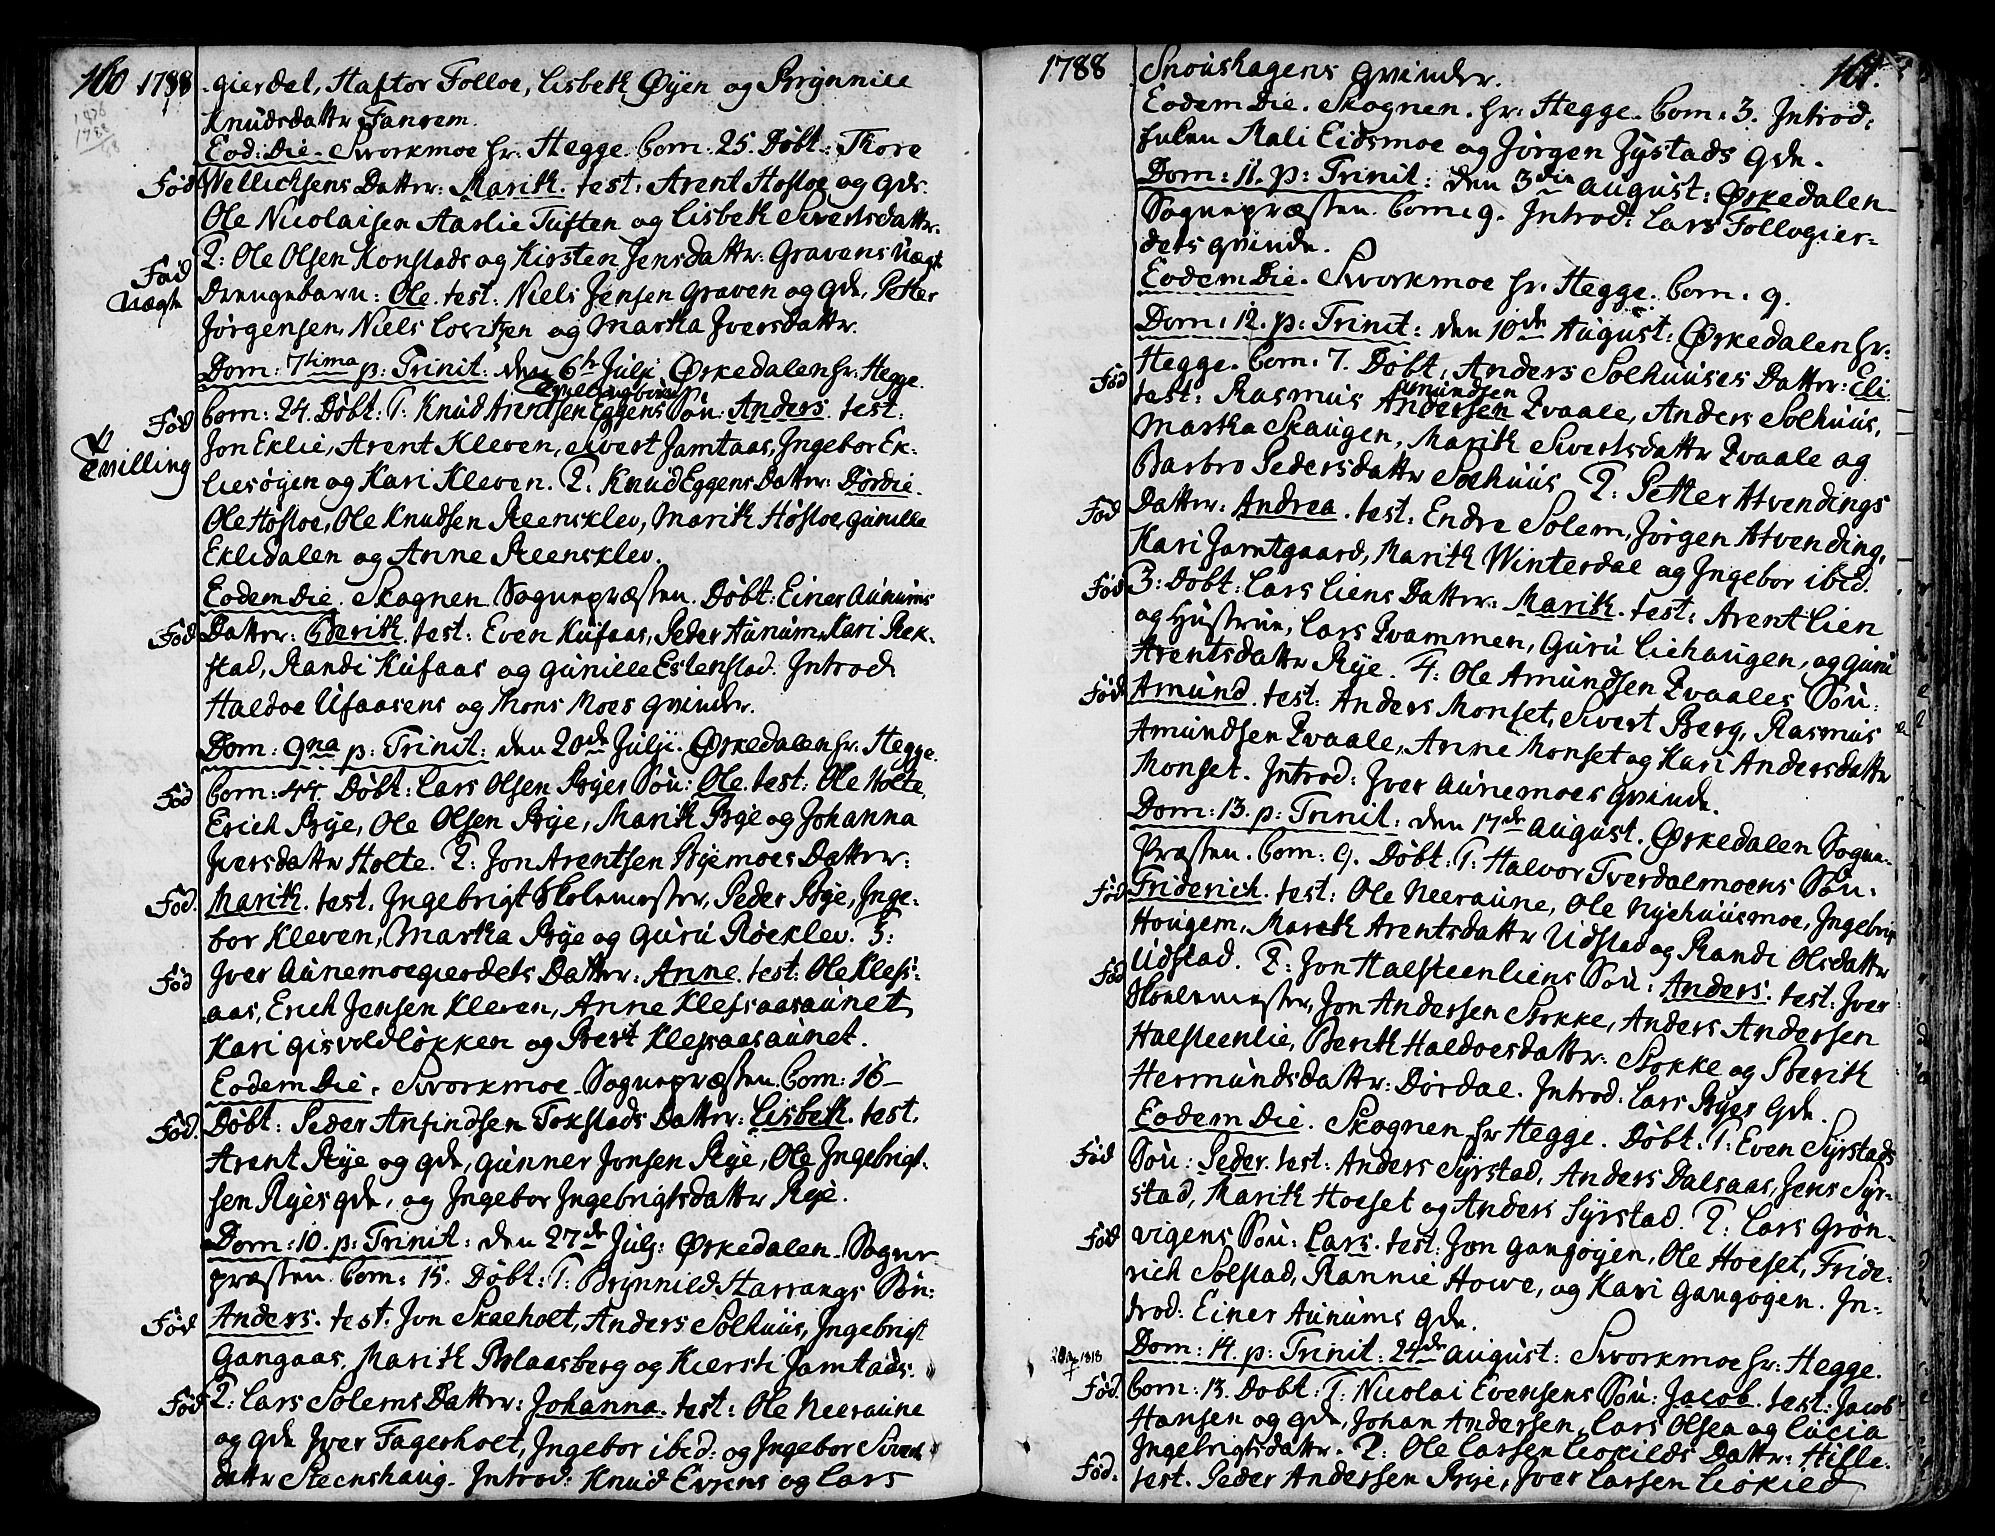 160 1788 gierdel, Haftor Folloe, Lisbeth Øÿen og Brÿnnild
Knudsdattr Fanrem.
Eod: Die. Sworkmoe hr. Hegge. Com: 25. Døbt: Thore
Fød Wellichsens Datter: Marith. test: Arent Hosloe og gde.
Ole Nicolaisen Aaslie Tuften og Lisbeth Sivertsdattr.
Fød 2: Ole Olsen Konstads og Kirsten Jensdattr: Gravens Uægt
Uægte Drengebarn: Ole. test: Niels Jensen Graven og gde, Petter
Jørgensen, Niels Loritzen og Martha Iversdattr.
Dom: 7tima p: Trinit: den 6te Julj: Ørkedalen hr: Hegge.
Tvillingbørn
Fød Com: 24. Døbt: 1: Knud Arntsen Eggens Søn: Anders. test:
Tvilling Jon Eklie, Arent Kleven, Sivert Jamtaas, Ingebor Ek-
liesøyen og Kari Kleven. 2: Knud Eggens Datter: Dordie.
Ole Hosloe, Ole Knudsen Steensklev, Marith Hosloe, Gunille
Eklidalen og Anne Steensklev.
Eodem Die. Skognen Sognepræsten. Døbt: Einer Aunums
Fød Datter: Berith. test: Even Kufaas, Peder Aunum, Kari Rek-
stad, Randi Kufaas og Gunille Estenstad. Introd
Haldoe Ufaasens og Mons Moes Qvinder.
Dom: 9na p: Trinit: den 20de Julji. Ørkedalen hr: Hegge.
Fød Com: 44. Døbt: Lars Olsen Byes Søn: Ole. test: Ole Holte,
Erich Bÿe, Ole Olsen Bÿe, Marith Bÿe og Johanna
Iversdattr Holte. 2: Jon Arentsen Byemoes Datter:
Fød. Marith. test. Ingebrigt Skolemester, Peder Bÿe, Inge-
bor Kleven, Martha Bÿe og Guru Røeklev. 3:
Fød Iver Aunemoegierdets Datter: Anne. test: Ole Klefs-
aas, Erich Jensen Kleven, Anne Klefsaasaunet,
Kari Gisvoldløkken og Berit Klefsaasaunet.
Eodem Die. Sworkmoe. Sognepræsten. Com: 16-
Fød. Døbt: Peder Anfindsen Tokstads Datter: Lisbeth. test.
Arent Rÿe og gde, Gunner Jonsen Rÿe, Ole Ingebrigt-
sen Rÿes gde, og Ingebor Ingebrigtsdattr Rÿe.
Dom: 10. p: Trinit: den 27de Julj: Ørkedalen. Sogne-
præsten. Com: 15. Døbt: 1: Brÿnnild Harrangs Søn:
Fød Anders. test: Jon Skaeholt, Anders Solhuus, Ingebrigt
Gangaas, Marith Blaasberg og Kiersti Jamtaas.
Fød 2: Lars Solems Datter: Johanna. test: Ole Neeraune
og gde Iver Fagerholt, Ingebor ibid: og Ingebor Siverts
dattr Steenshaug. Introd: Knud Evjens og Lars
1788 Snoushagens Qvinder. 161.
Eodem Die. Skognen. hr: Hegge. Com: 3. Introd:
Mali Eidsmoe og Jørgen Zÿstads gde.
Dom: 11. p: Trinit: den 3die August: Ørkedalen
Sognepræsten. Com: 9. Introd: Lars Follogier-
dets Qvinde.
Eodem Die. Sworkmoe hr. Hegge. Com: 9.
Dom: 12. p: Trinit: den 10de August: Ørkedalen hr:
Fød Hegge. Com: 7. Døbt, Anders Solhuuses Datter: Eli.
Amundsen
test: Rasmus Andersen Qvaale, Anders Solhuus,
Martha Skaugen, Marith Sivertsdattr Qvaale og
Barbro Pedersdattr Solhuus 2: Petter Atvendings
Fød Datter: Andrea. test: Endre Solem, Jørgen Atvending,
Kari Jamtgaard, Marith Winterdal og Ingebor ibid.
Fød 3: Døbt: Lars Liens Datter: Marith. test: Arent Lien
og Hustrue, Lars Qvammen, Guru Liehaugen, og Guru
Arentsdattr Rÿe. 4: Ole Amundsen Qvaales Søn:
Fød Amund. test: Anders Monset, Sivert Berg, Rasmus
Amundsen Qvaale, Anne Monset og Kari Andersdattr
Monset. Introd: Iver Aunemoes Qvinde.
Dom: 13. p: Trinit: den 17de August. Ørkedalen Sogne-
Præsten. Com: 9. Døbt: 1: Halvor Tverdalmoens Søn.
Fød Friderich. test: Ole Neeraune, Ole Nÿehuusmoe, Ingebrigt
Hougem, Marith Arentsdattr Udstad og Randi Olsdattr
Udstad. 2: Jon Halsteenliens Søn: Anders. test: Iver
Fød Skolemester, Jon Andersen Stokke, Anders Andersen
Halsteenlie, Berith Haldoesdattr: Stokke og Berith
Hermundsdattr: Dørdal. Introd: Lars Byes gde.
Eodem Die. Skognen hr Hegge. Døbt: 1: Even Sÿrstads
Fød Søn: Peder. test: Anders Sÿrstad, Anders Dalsaas, Jens Sÿr-
stad, Marith Hoeset og Anders Sÿrstad. 2: Lars Grøn-
Fød vigens Søn: Lars. test: Jon Gangøyen, Ole Hoeset, Fride-
rich Solstad, Rannie Howe, og Kari Gangøyen. In-
trod: Einer Aunums gde.
Dom: 14. p: Trinit: 24de August: Sworkmoe hr: Hegge.
Fød. Com: 13. Døbt: 1: Nicolai Evensens Søn: Jacob. test: Jacob
Hansen og gde, Johan Andersen, Lars Olsen og Lucia
Ingebrigtsdattr. 2: Ole Larsen Liokilds Datter: Hille.
Fød. test. Peder Andersen Bÿe, Iver Larsen Liokild